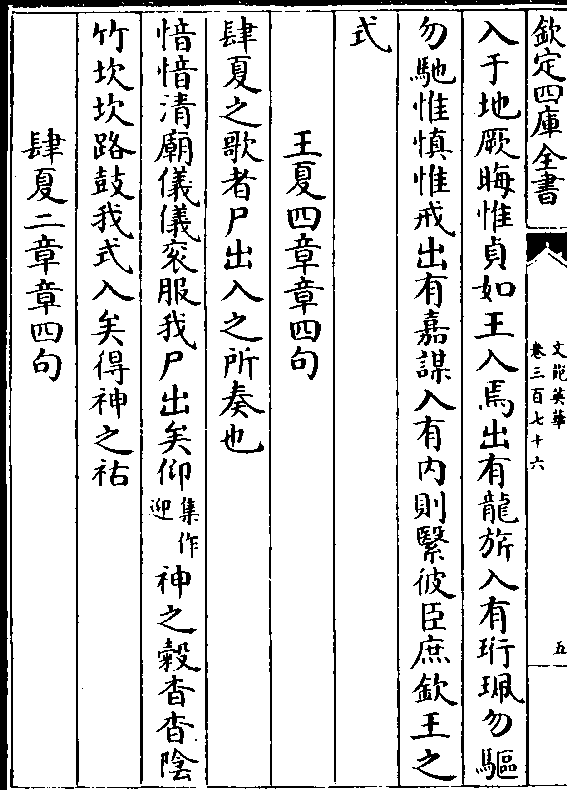 欽定四庫全書
文苑英華
卷三百七十六
五
入于地厥晦惟貞如王入焉出有龍旂入有珩珮勿驅
勿馳惟慎惟戒出有嘉謀入有内則繄彼臣庶欽王之
式
王夏四章章四句
肆夏之歌者尸出入之所奏也
愔愔清廟儀儀衮服我尸出矣仰集作迎神之穀杳杳陰
竹坎坎路鼓我式入矣得神之祜
肆夏二章章四句